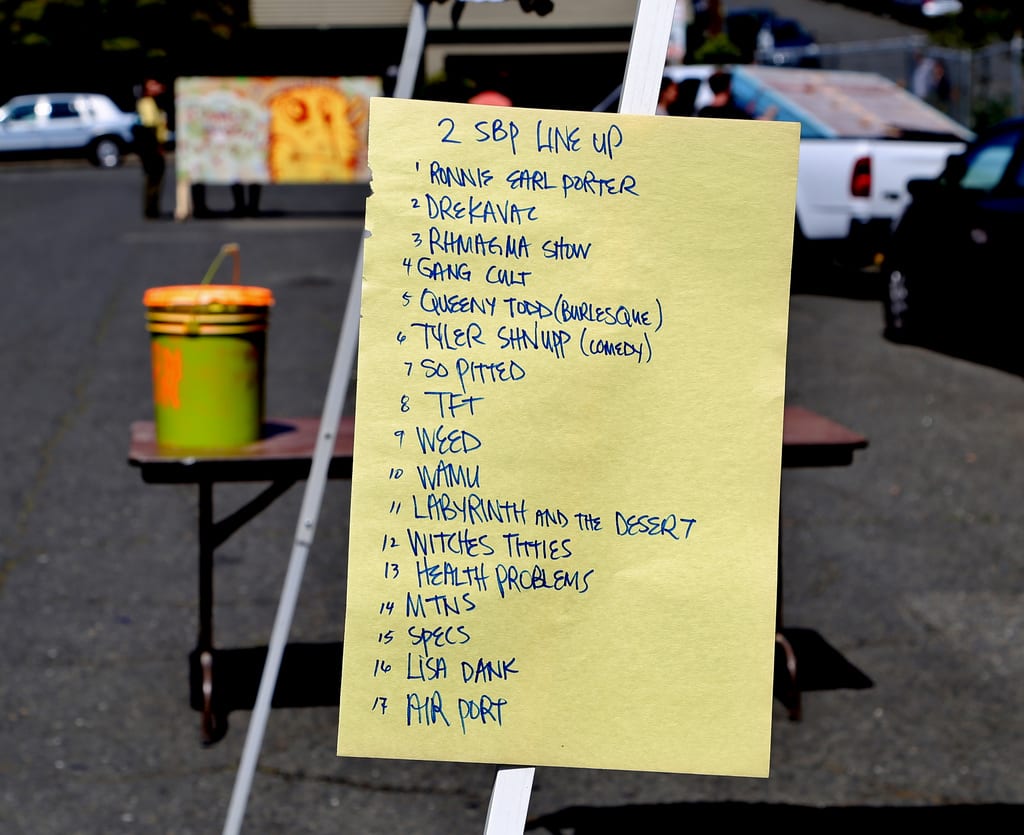 2 SBP LINE UP
1 RONNIE EARL PORTER
2 DREKAVAC
3 RHMAGMA SHOW
4 GANG CULT
5 QUEENY TODD (BURLESQUE)
6 TYLER SHNUPP (COMEDY)
7 SO PITTED
8 TFT
9 WEED
10 WAMU
11 LABYRINTH AND THE DESERT
12 WITCHES TITTIES
13 HEALTH PROBLEMS
14 MTNS
15 SPECS
16 LISA DANK
17 AIR PORT